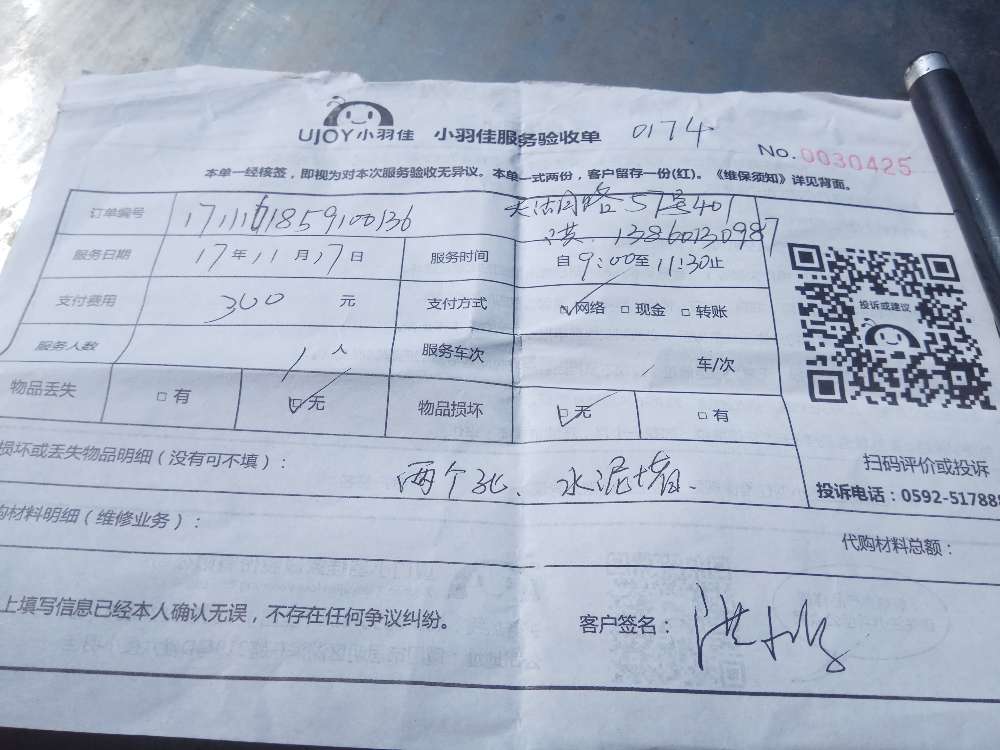 UJOY小羽佳 小羽佳服务验收单 0174
No.0030425
本单一经核签，即视为对本次服务验收无异议。本单一式两份，客户留存一份(红)。《维保须知》详见背面。
订单编号 57号401
13860130987
服务日期 17年11月17日 服务时间 自9:00至11:30止
支付费用 300元 支付方式 ☑网络 □现金 □转账
投诉或建议
服务人数 1人 服务车次 / 车/次
物品丢失 □有 ☑无 物品损坏 ☑无 □有
损坏或丢失物品明细（没有可不填）： 两个孔、水泥墙.
扫码评价或投诉
投诉电话：0592-517888
购材料明细（维修业务）：
代购材料总额：
上填写信息已经本人确认无误，不存在任何争议纠纷。 客户签名：